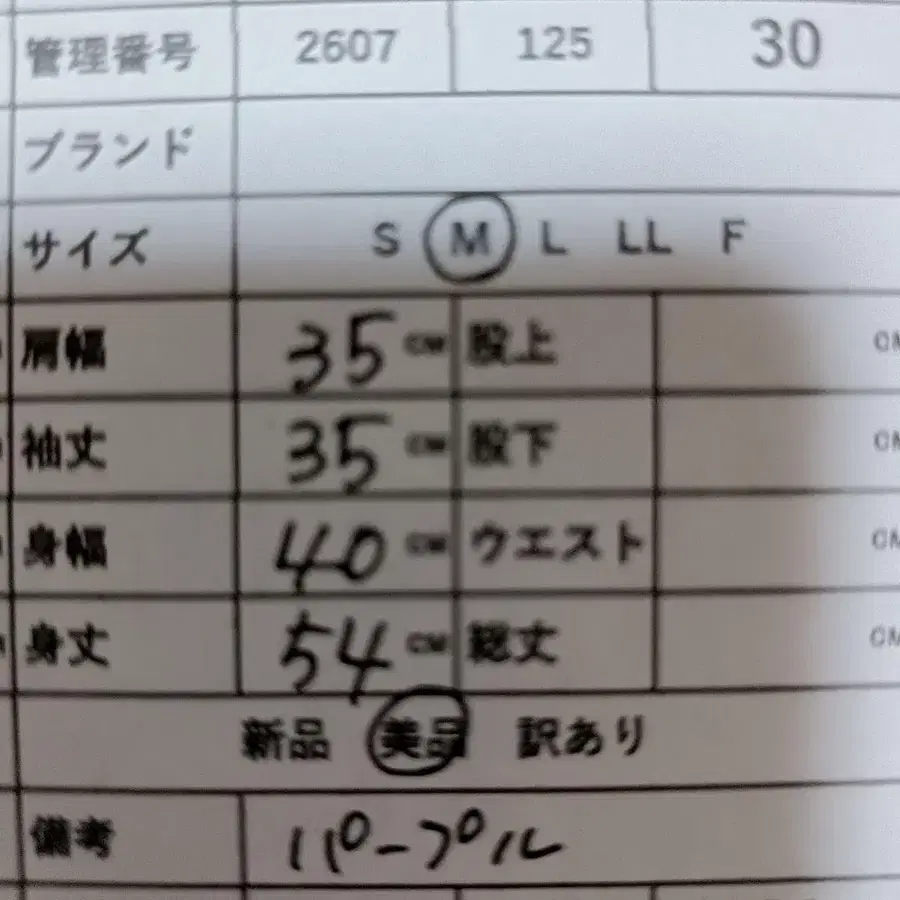 管理番号 2607 125 30
ブランド
サイズ S M L LL F
肩幅 35 CM 股上 CM
袖丈 35 CM 股下 CM
身幅 40 CM ウエスト CM
身丈 54 CM 総丈 CM
新品 美品 訳あり
備考 パープル